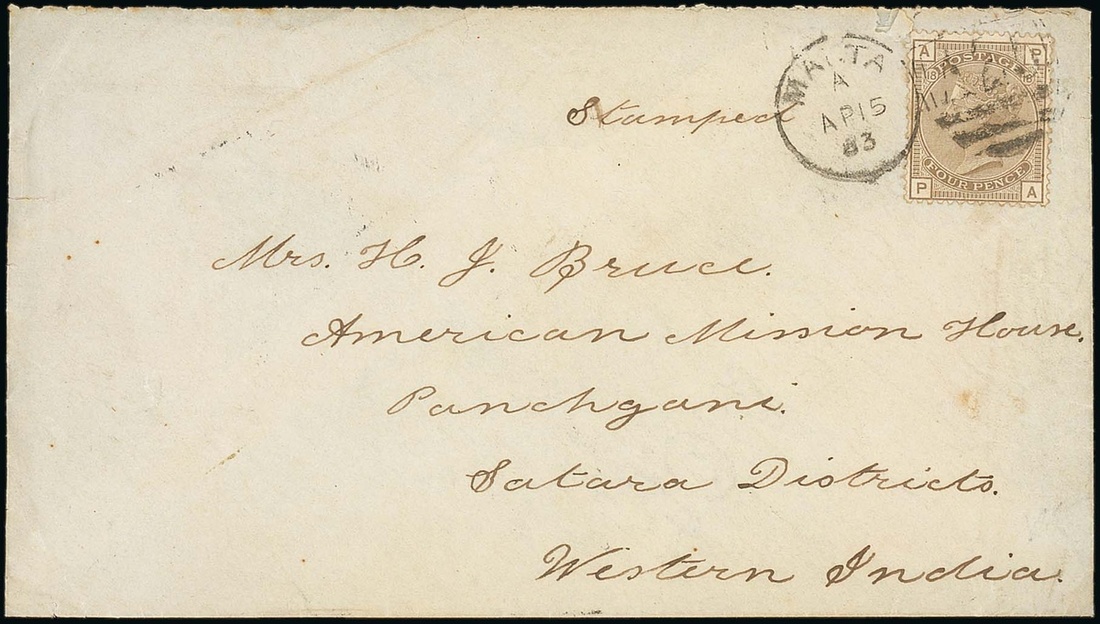 MALTA
A
AP 15
83
A P
POSTAGE
18 18
FOUR PENCE
P A
Stamped
Mrs. H. J. Bruce.
American Mission House,
Panchgani.
Satara Districts.
Western India.